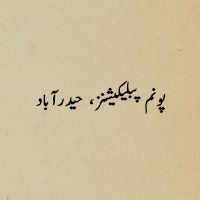 پونم پبلیکیشنز، حیدرآباد